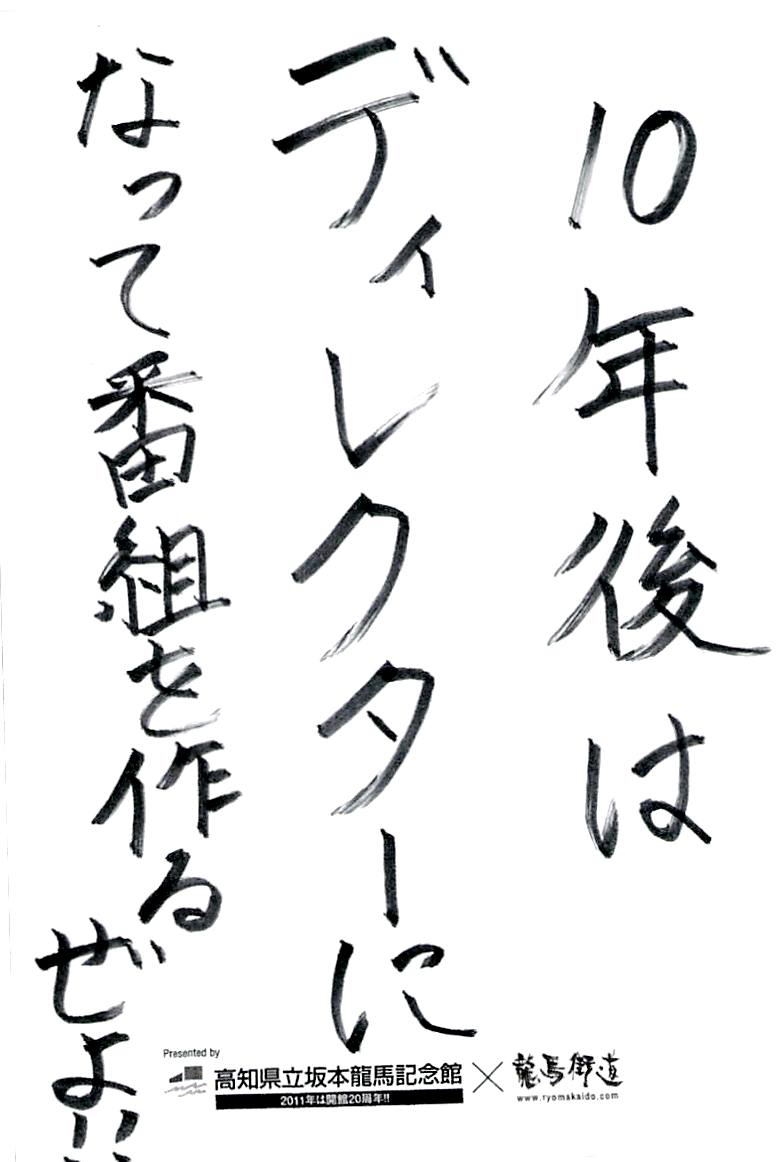 10年後は
ディレクターに
なって番組を作るぜよ!!
Presented by
高知県立坂本龍馬記念館 × 龍馬街道
2011年は開館20周年!!
www.ryomakaido.com